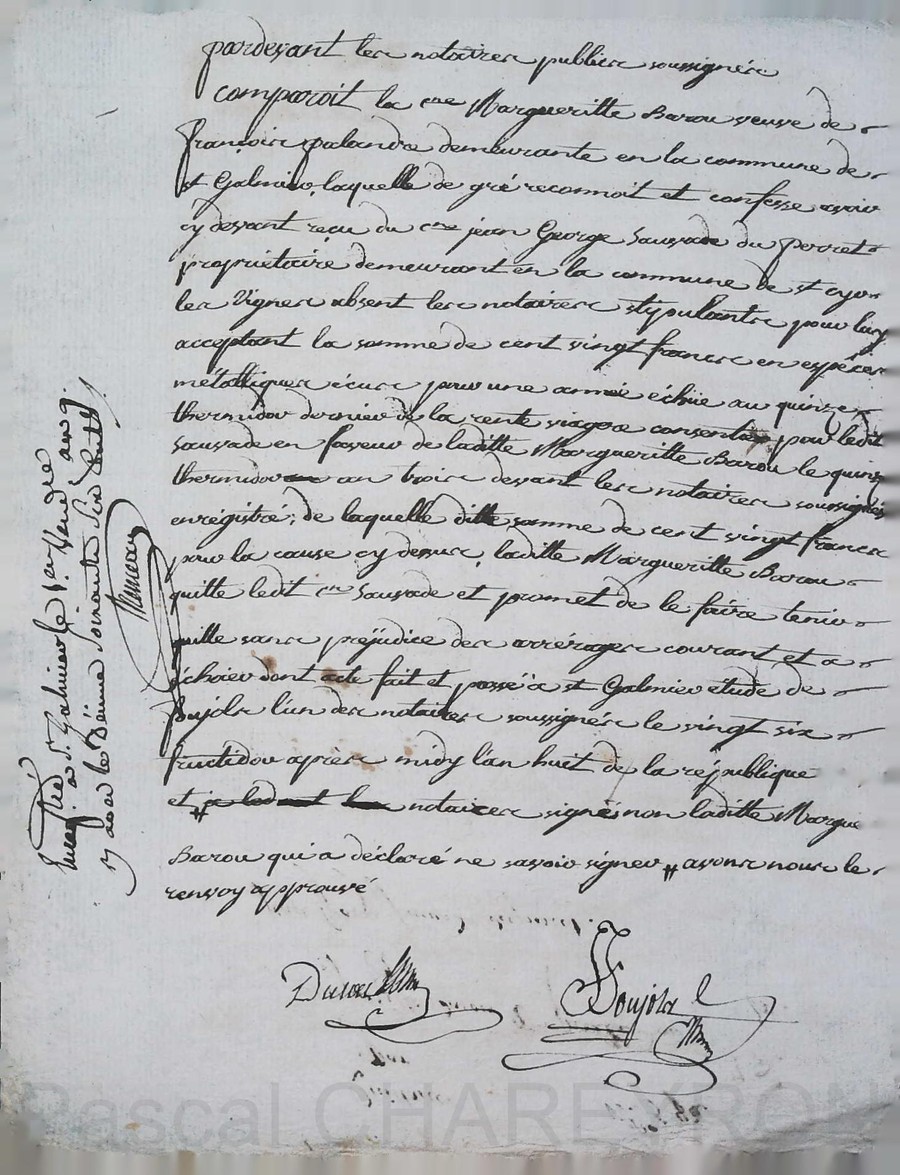 pardevant les notaires publics soussignés
comparoit la cne Margueritte Barou veuve de
françois palandre demeurante en la commune de
st Galmier, laquelle de gré reconnoit et confesse avoir
cy devant reçu du cen jean George Sauvade du perret
propriétaire demeurant en la commune de st cyr
les Vignes absent les notaires stipulants pour luy
acceptant la somme de cent vingt francs en espéces
métalliques écus pour une année échue au quinze
thermidor dernier de la rente viagere consentie par ledit
sauvade en faveur de laditte Margueritte Barou le quinze
thermidor an trois devant les notaires soussignés
enregistré; de laquelle ditte somme de cent vingt francs
pour la cause cy dessus, laditte Margueritte Barou
quitte ledit cen Sauvade et promet de le faire tenir
quitte sans préjudice des arrérages courant et a
échoier dont acte fait et passé a st Galmier étude de
pujols l'un des notaires soussignés le vingt six
fructidor après midy l'an huit de la république
et notaires signé, non laditte Margue
Barou qui a déclaré ne savoir signer # avons nous le
renvoy approuvé
Enregistré a St. Galmier le 1er. Vend.re an 9.
Pujols